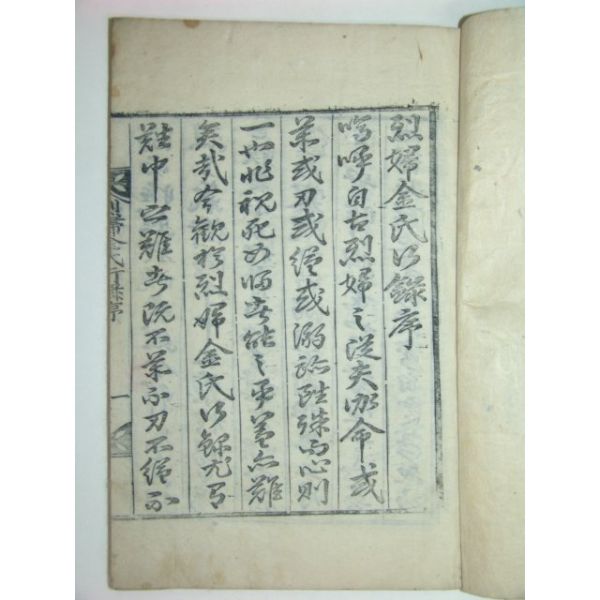 烈婦金氏行錄序
嗚呼自古烈婦之從夫殞命或
藥或刀或縊或溺跡雖殊而心則
一也非視死如歸者能之乎盖亦難
矣哉今觀於烈婦金氏行錄尤有
難中之難者旣不藥不刀不縊不
烈婦金氏行錄序
一